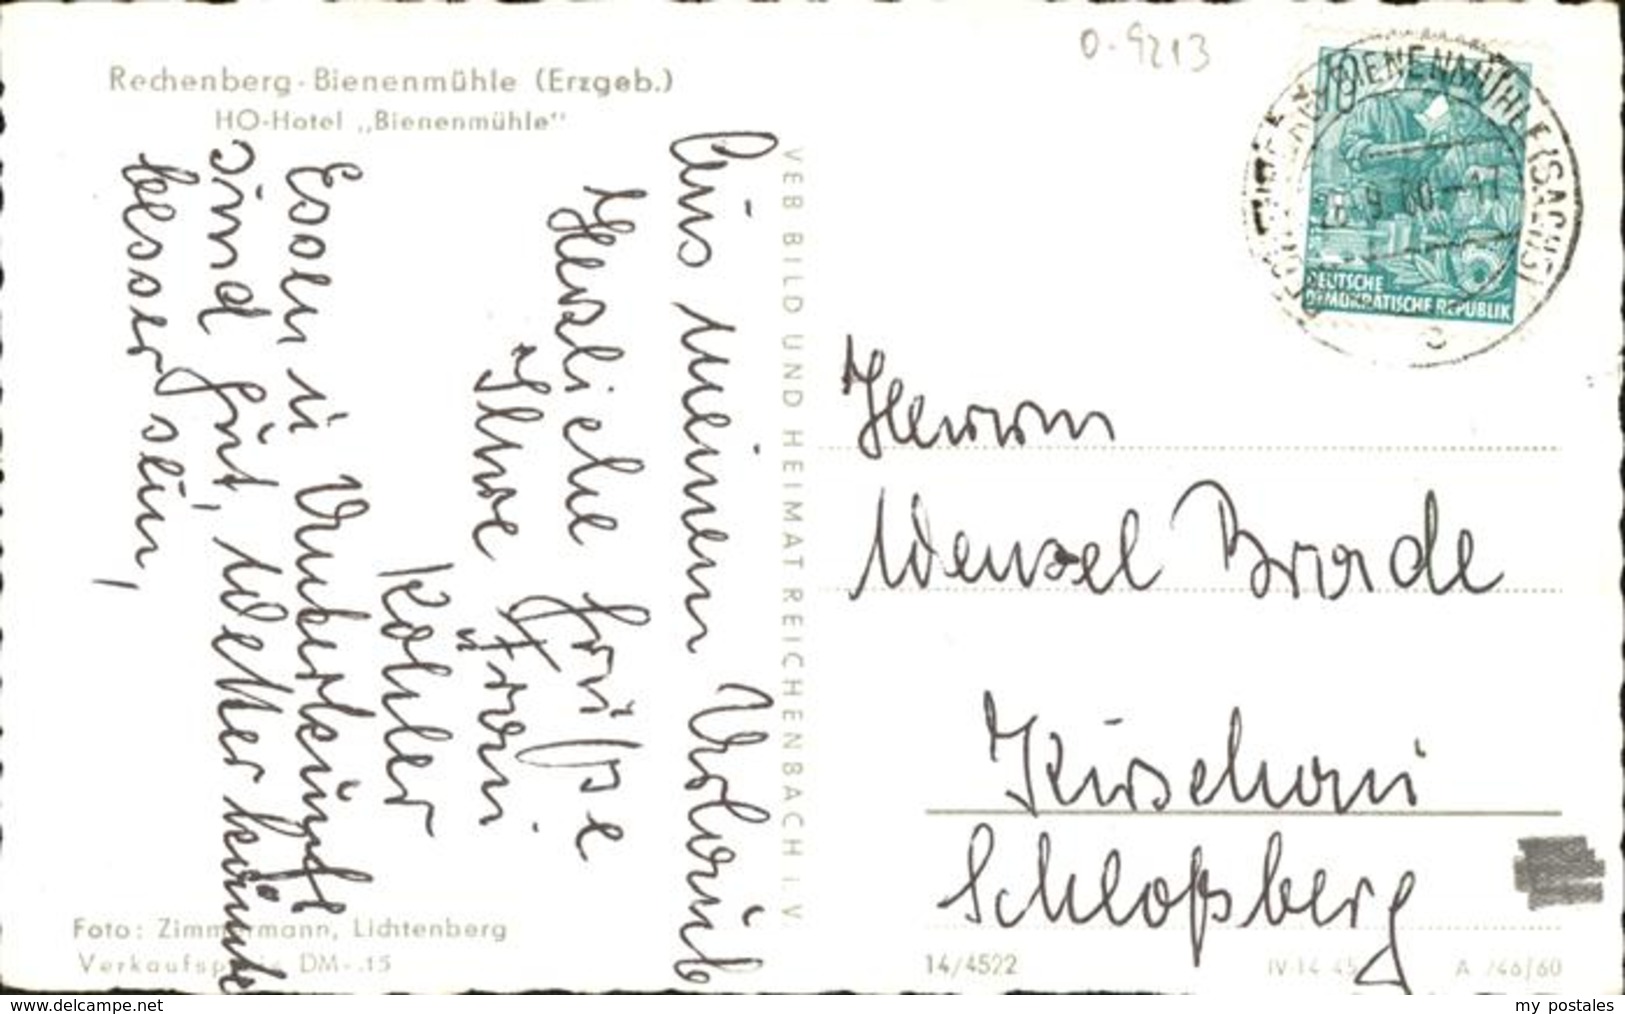 Rechenberg-Bienenmühle (Erzgeb.)
HO-Hotel „Bienenmühle“
Aus meinem Urlaub
Herzliche Grüße
Ihre Frau
Köhler
Essen u Unterkünfte
sind gut, Wetter könnte
besser sein,
VEB BILD UND HEIMAT REICHENBACH i. V.
Foto: Zimmermann, Lichtenberg
Verkaufspreis DM -.15
0-9213
10
DEUTSCHE
DEMOKRATISCHE REPUBLIK
BIENENMÜHLE (SACHS)
9 60-17
c
Herrn
Wenzel Brade
Kirschau
Schloßberg
14/4522
IV-14-45
A 746/60
my postales
www.delcampe.net